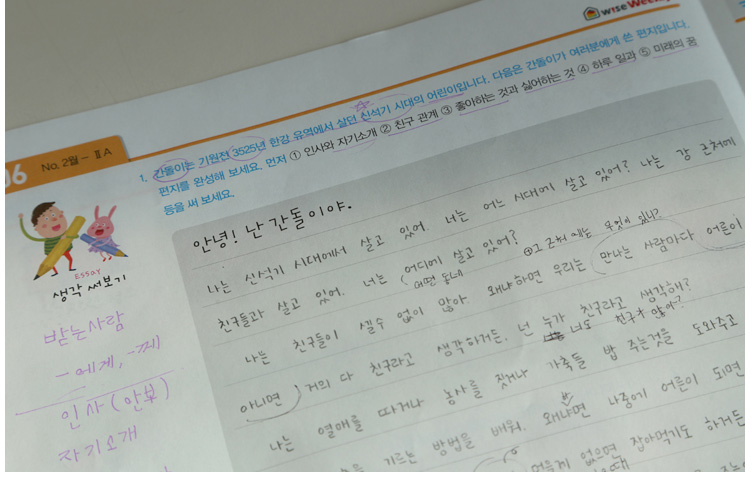 wise Weekly
06 No. 2월 - ⅡA
1. 간돌이는 기원전 3525년 한강 유역에서 살던 신석기 시대의 어린이입니다. 다음은 간돌이가 여러분에게 쓴 편지입니다.
편지를 완성해 보세요. 먼저 ① 인사와 자기소개 ② 친구 관계 ③ 좋아하는 것과 싫어하는 것 ④ 하루 일과 ⑤ 미래의 꿈
등을 써 보세요.
ESSAY
생각 써보기
받는사람
- 에게, -께
인사 (안부)
자기소개
안녕! 난 간돌이야.
나는 신석기 시대에서 살고 있어. 너는 어느 시대에 살고 있어? 나는 강 근처에
④그 근처에는 무엇이 있니?
친구들과 살고 있어. 너는 어디에 살고 있어?
어떤 동네
나는 친구들이 셀수 없이 많아. 왜냐하면 우리는 만나는 사람마다 어른이
아니면 거의 다 친구라고 생각하거든. 넌 누가 친구라고 생각해?
너도 친구가 많아?
나는 열매를 따거나 농사를 짓거나 가축들 밥 주는것을 도와주고
기르는 방법을 배워. 왜냐면 나중에 어른이 되면
없으면 잡아먹기도 하거든